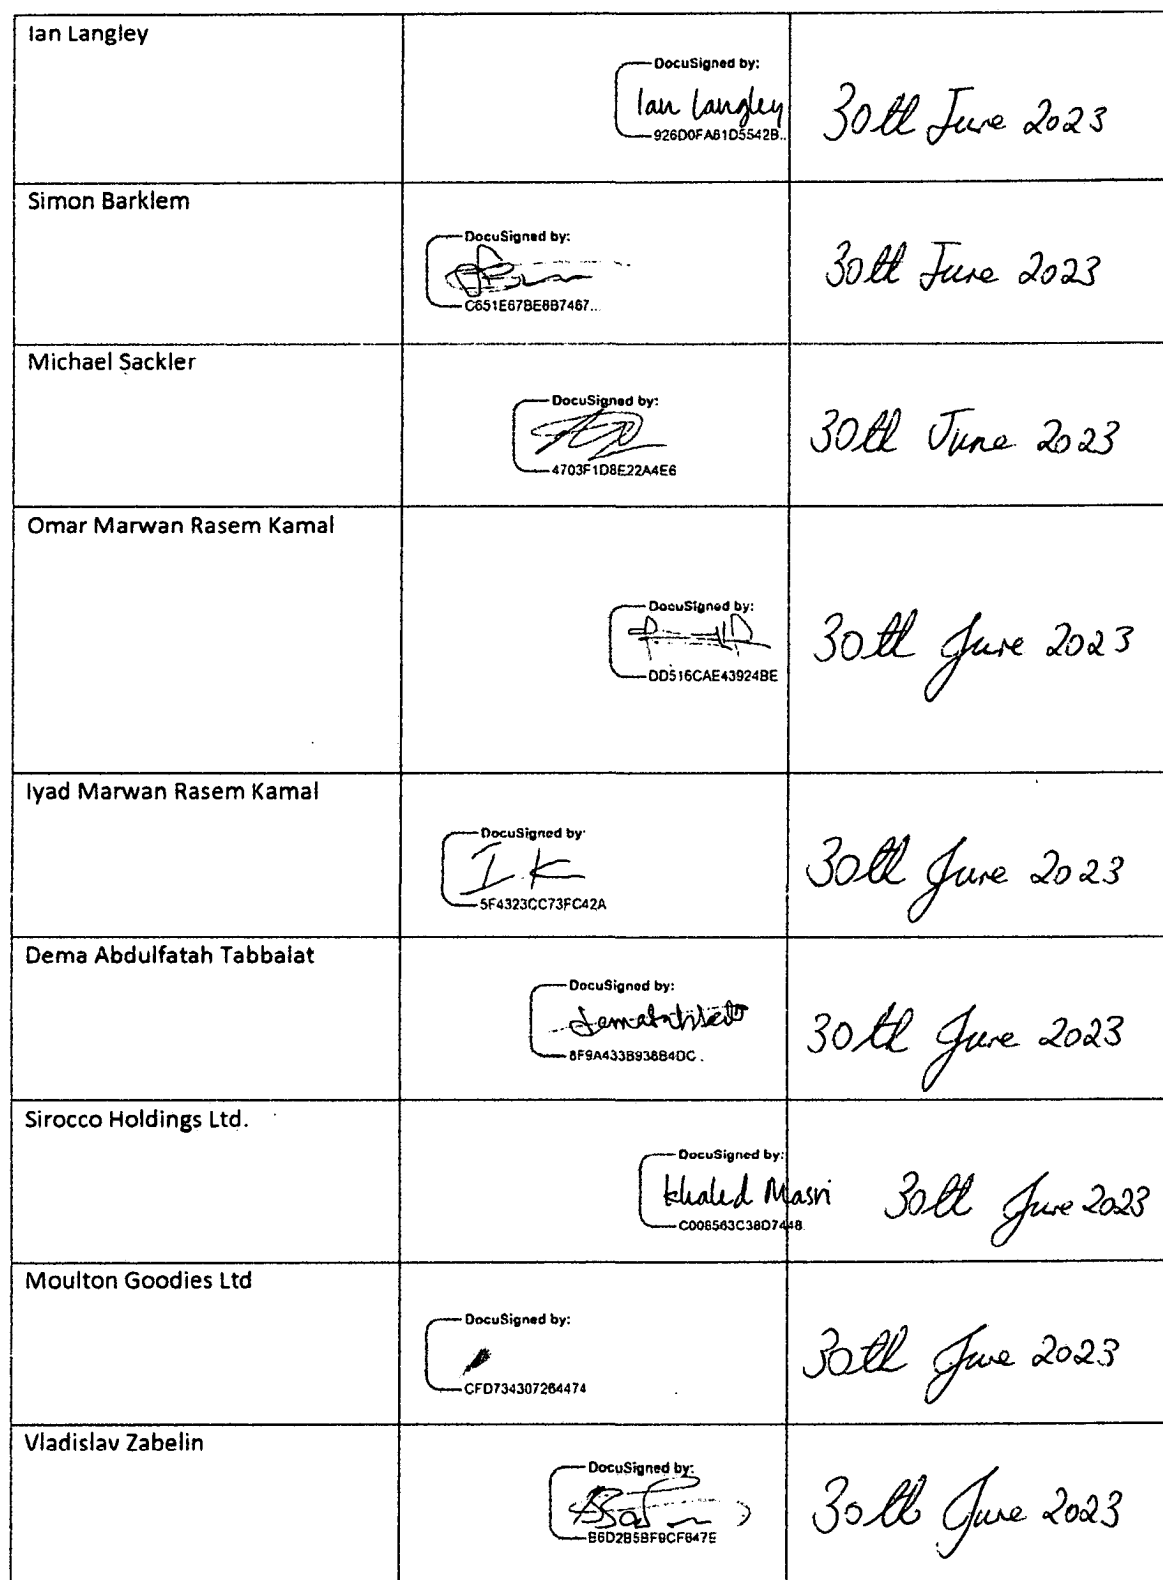 Ian Langley
DocuSigned by:
Ian Langley
926D0FA81D5542B..
30th June 2023
Simon Barklem
DocuSigned by:
C651E67BE8B7467...
30th June 2023
Michael Sackler
DocuSigned by:
4703F1D8E22A4E6
30th June 2023
Omar Marwan Rasem Kamal
DocuSigned by:
DD516CAE43924BE
30th June 2023
Iyad Marwan Rasem Kamal
DocuSigned by:
I.K
5F4323CC73FC42A
30th June 2023
Dema Abdulfatah Tabbalat
DocuSigned by:
8F9A433B938B4DC.
30th June 2023
Sirocco Holdings Ltd.
DocuSigned by:
Khaled Masri
C008563C38D7448.
30th June 2023
Moulton Goodies Ltd
DocuSigned by:
CFD734307264474
30th June 2023
Vladislav Zabelin
DocuSigned by:
B6D2B5BF9CF647E
30th June 2023